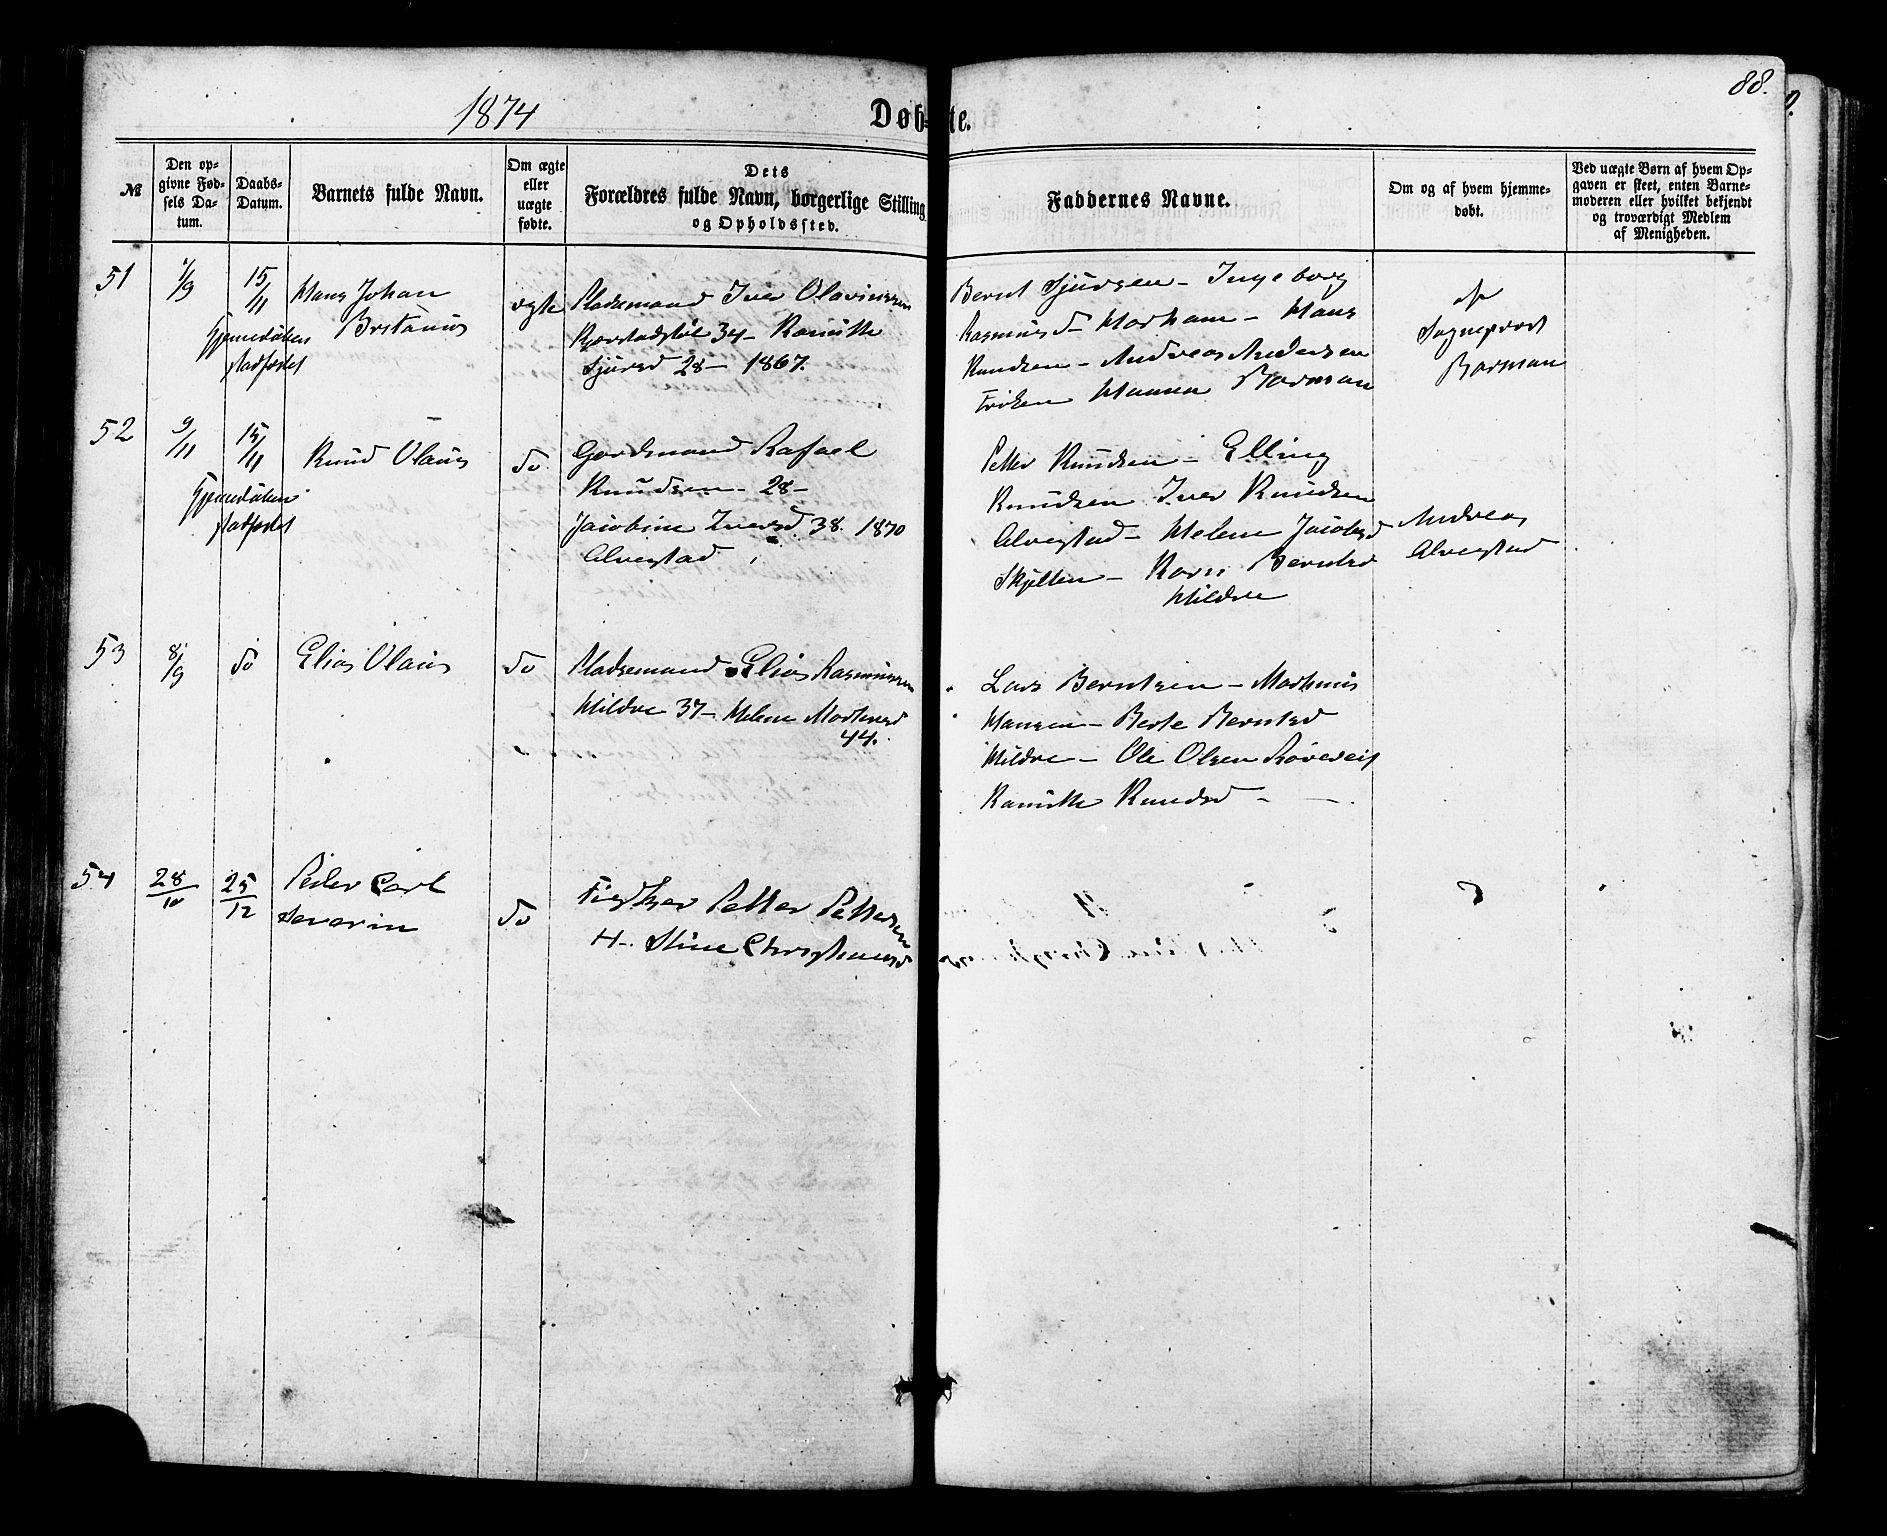 88.
1874
Døb-te.
№
Den op-
givne Fød-
sels Da-
tum.
Daabs-
Datum.
Barnets fulde Navn.
Om ægte
eller
uægte
fødte.
Dets
Forældres fulde Navn, borgerlige Stilling
og Opholdssted.
Faddernes Navne.
Om og af hvem hjemme-
døbt.
Ved uægte Børn af hvem Op-
gaven er skeet, enten Barne-
moderen eller hvilket bekjendt
og troværdigt Medlem
af Menigheden.
51
1/9
15/11
Hans Johan
Hjemedøben
stadfæstet
ægte
Pladsemand Iver Olavinssen
34 - Kanutte
Sjursd 28 - 1867.
Bernt Sjursen - Ingeborg
Rasmusd - Harham - Hans
Knudsen - Andreas Andersen
Frøken Hanna Barman
af
Sogneprest
Barman
52
9/11
15/11
Hjemedøben
stadfæstet
Knud Olaus
do
Gardmand Rafael
Knudsen - 28 -
Jacobine Iversd. 38. 1870
Alvestad
Petter Knudsen - Elling
Knudsen Iver Knudsen
Alvestad - Helene Jacobsd
Skjelten - Karn Berntsd
Hildre
Andreas
Alvestad
53
8/9
do
Elias Olaus
do
Pladsemand Elias Rasmussen
Hildre 37 - Helene Mortensd
44.
Lars Berntsen - Mathias
Hansen - Berte Berntsd
Hildre - Ole Olsen
Kanutte Knudsd -
54
28/10
25/12
Peder Carl
Severin
do
Fisker Petter Pettersen
H. Stine Christiansd